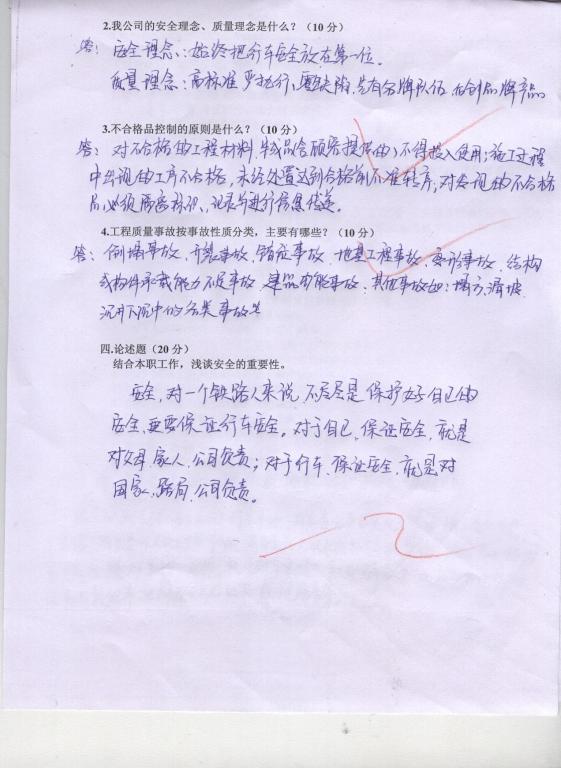 2.我公司的安全理念、质量理念是什么？（10 分）
答：安全理念：始终把行车安全放在第一位。
质量理念：高标准 严执行、零缺陷、先有名牌队伍 后创品牌产品
3.不合格品控制的原则是什么？（10 分）
答：对不合格的工程材料、半成品(含顾客提供的)不得投入使用；施工过程
中出现的工序不合格，未经处置达到合格前不准转序；对发现的不合格
品必须隔离标识、记录并进行信息传递。
4.工程质量事故按事故性质分类，主要有哪些？（10 分）
答：倒塌事故、开裂事故、错位事故、地基工程事故、变形事故、结构
或构件承载能力不足事故、建筑功能事故、其他事故如：塌方、滑坡、
沉井下沉中的各类事故等
四.论述题（20 分）
结合本职工作，浅谈安全的重要性。
安全，对一个铁路人来说，不仅仅是保护好自己的
安全，更要保证行车安全。对于自己，保证安全，就是
对父母、家人、公司负责；对于行车，保证安全，就是对
国家、路局、公司负责。